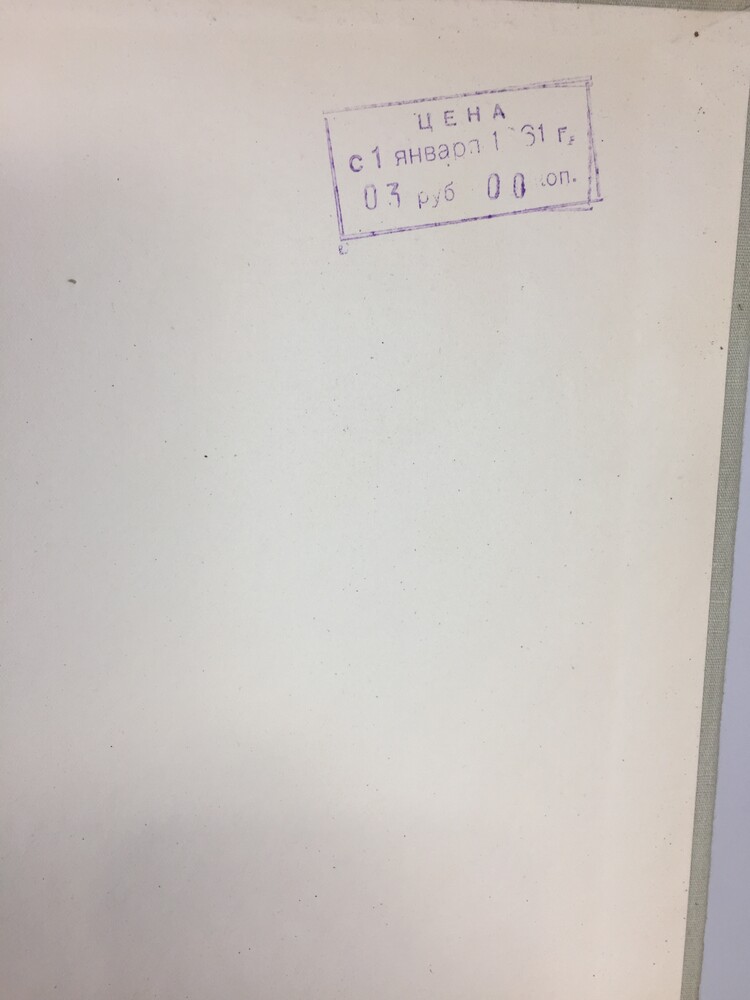 ЦЕНА
с 1 января 1961 г.
03 руб 00 коп.